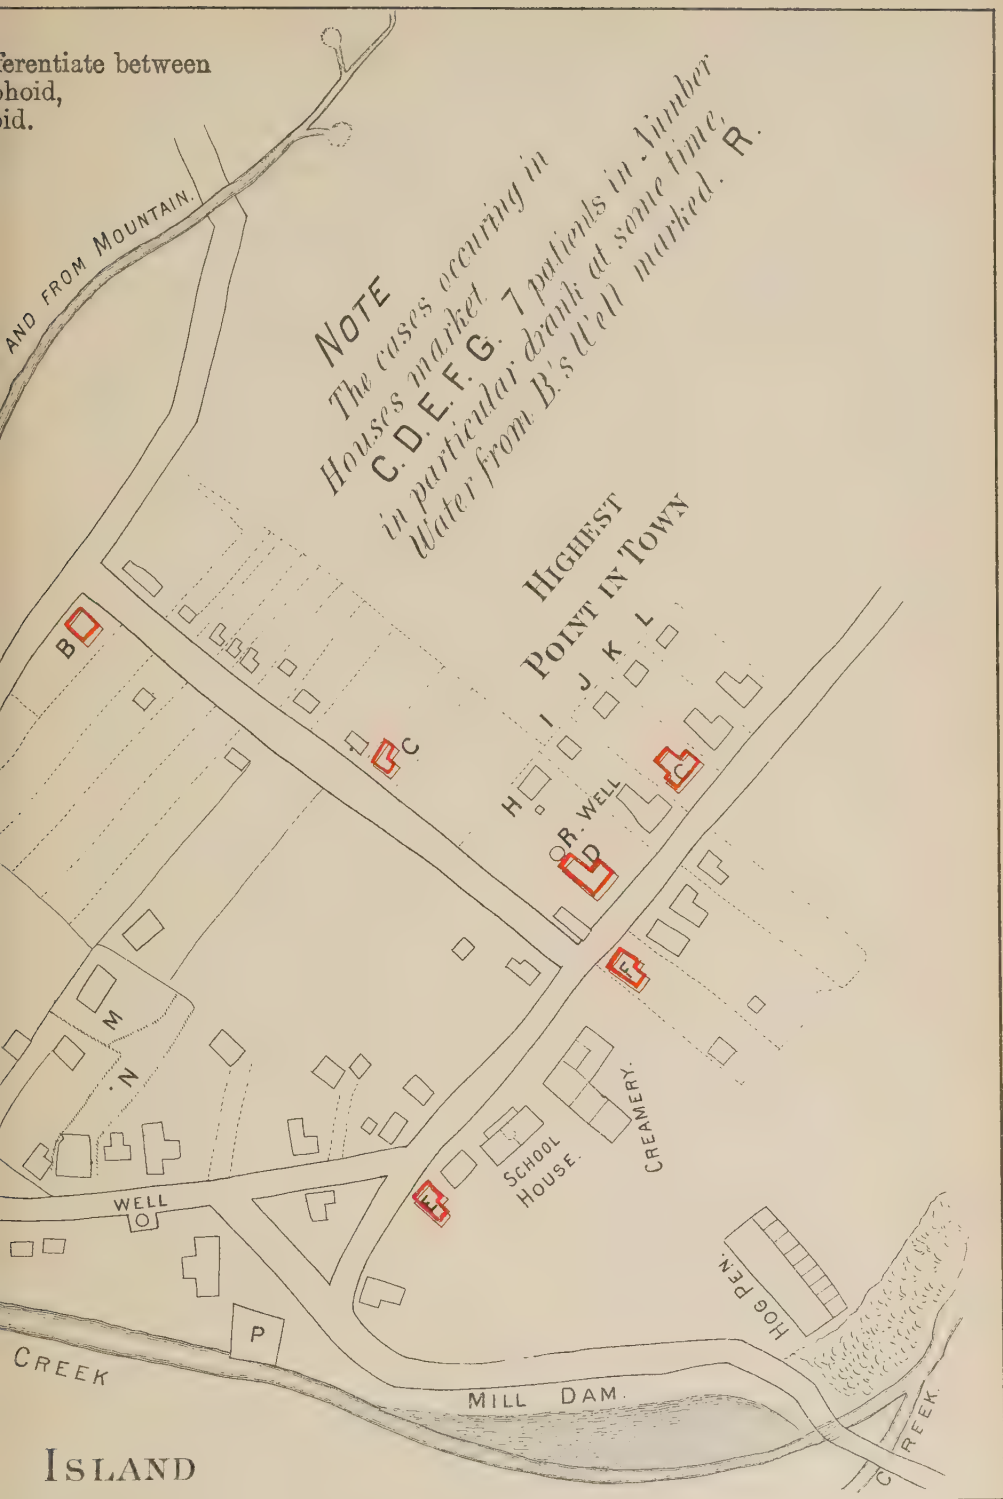 ferentiate between
phoid,
oid.
AND FROM MOUNTAIN.
NOTE
The cases occuring in
Houses market
C. D. E. F. G. 7 patients in Number
in particular drank at some time,
Water from B.'s Well marked. R.
HIGHEST
POINT IN TOWN
B
C
H
I
J
K
L
R. WELL
C
D
F
M
N.
CREAMERY.
SCHOOL
HOUSE.
E
WELL
P
HOG PEN.
CREEK
MILL DAM.
CREEK.
ISLAND